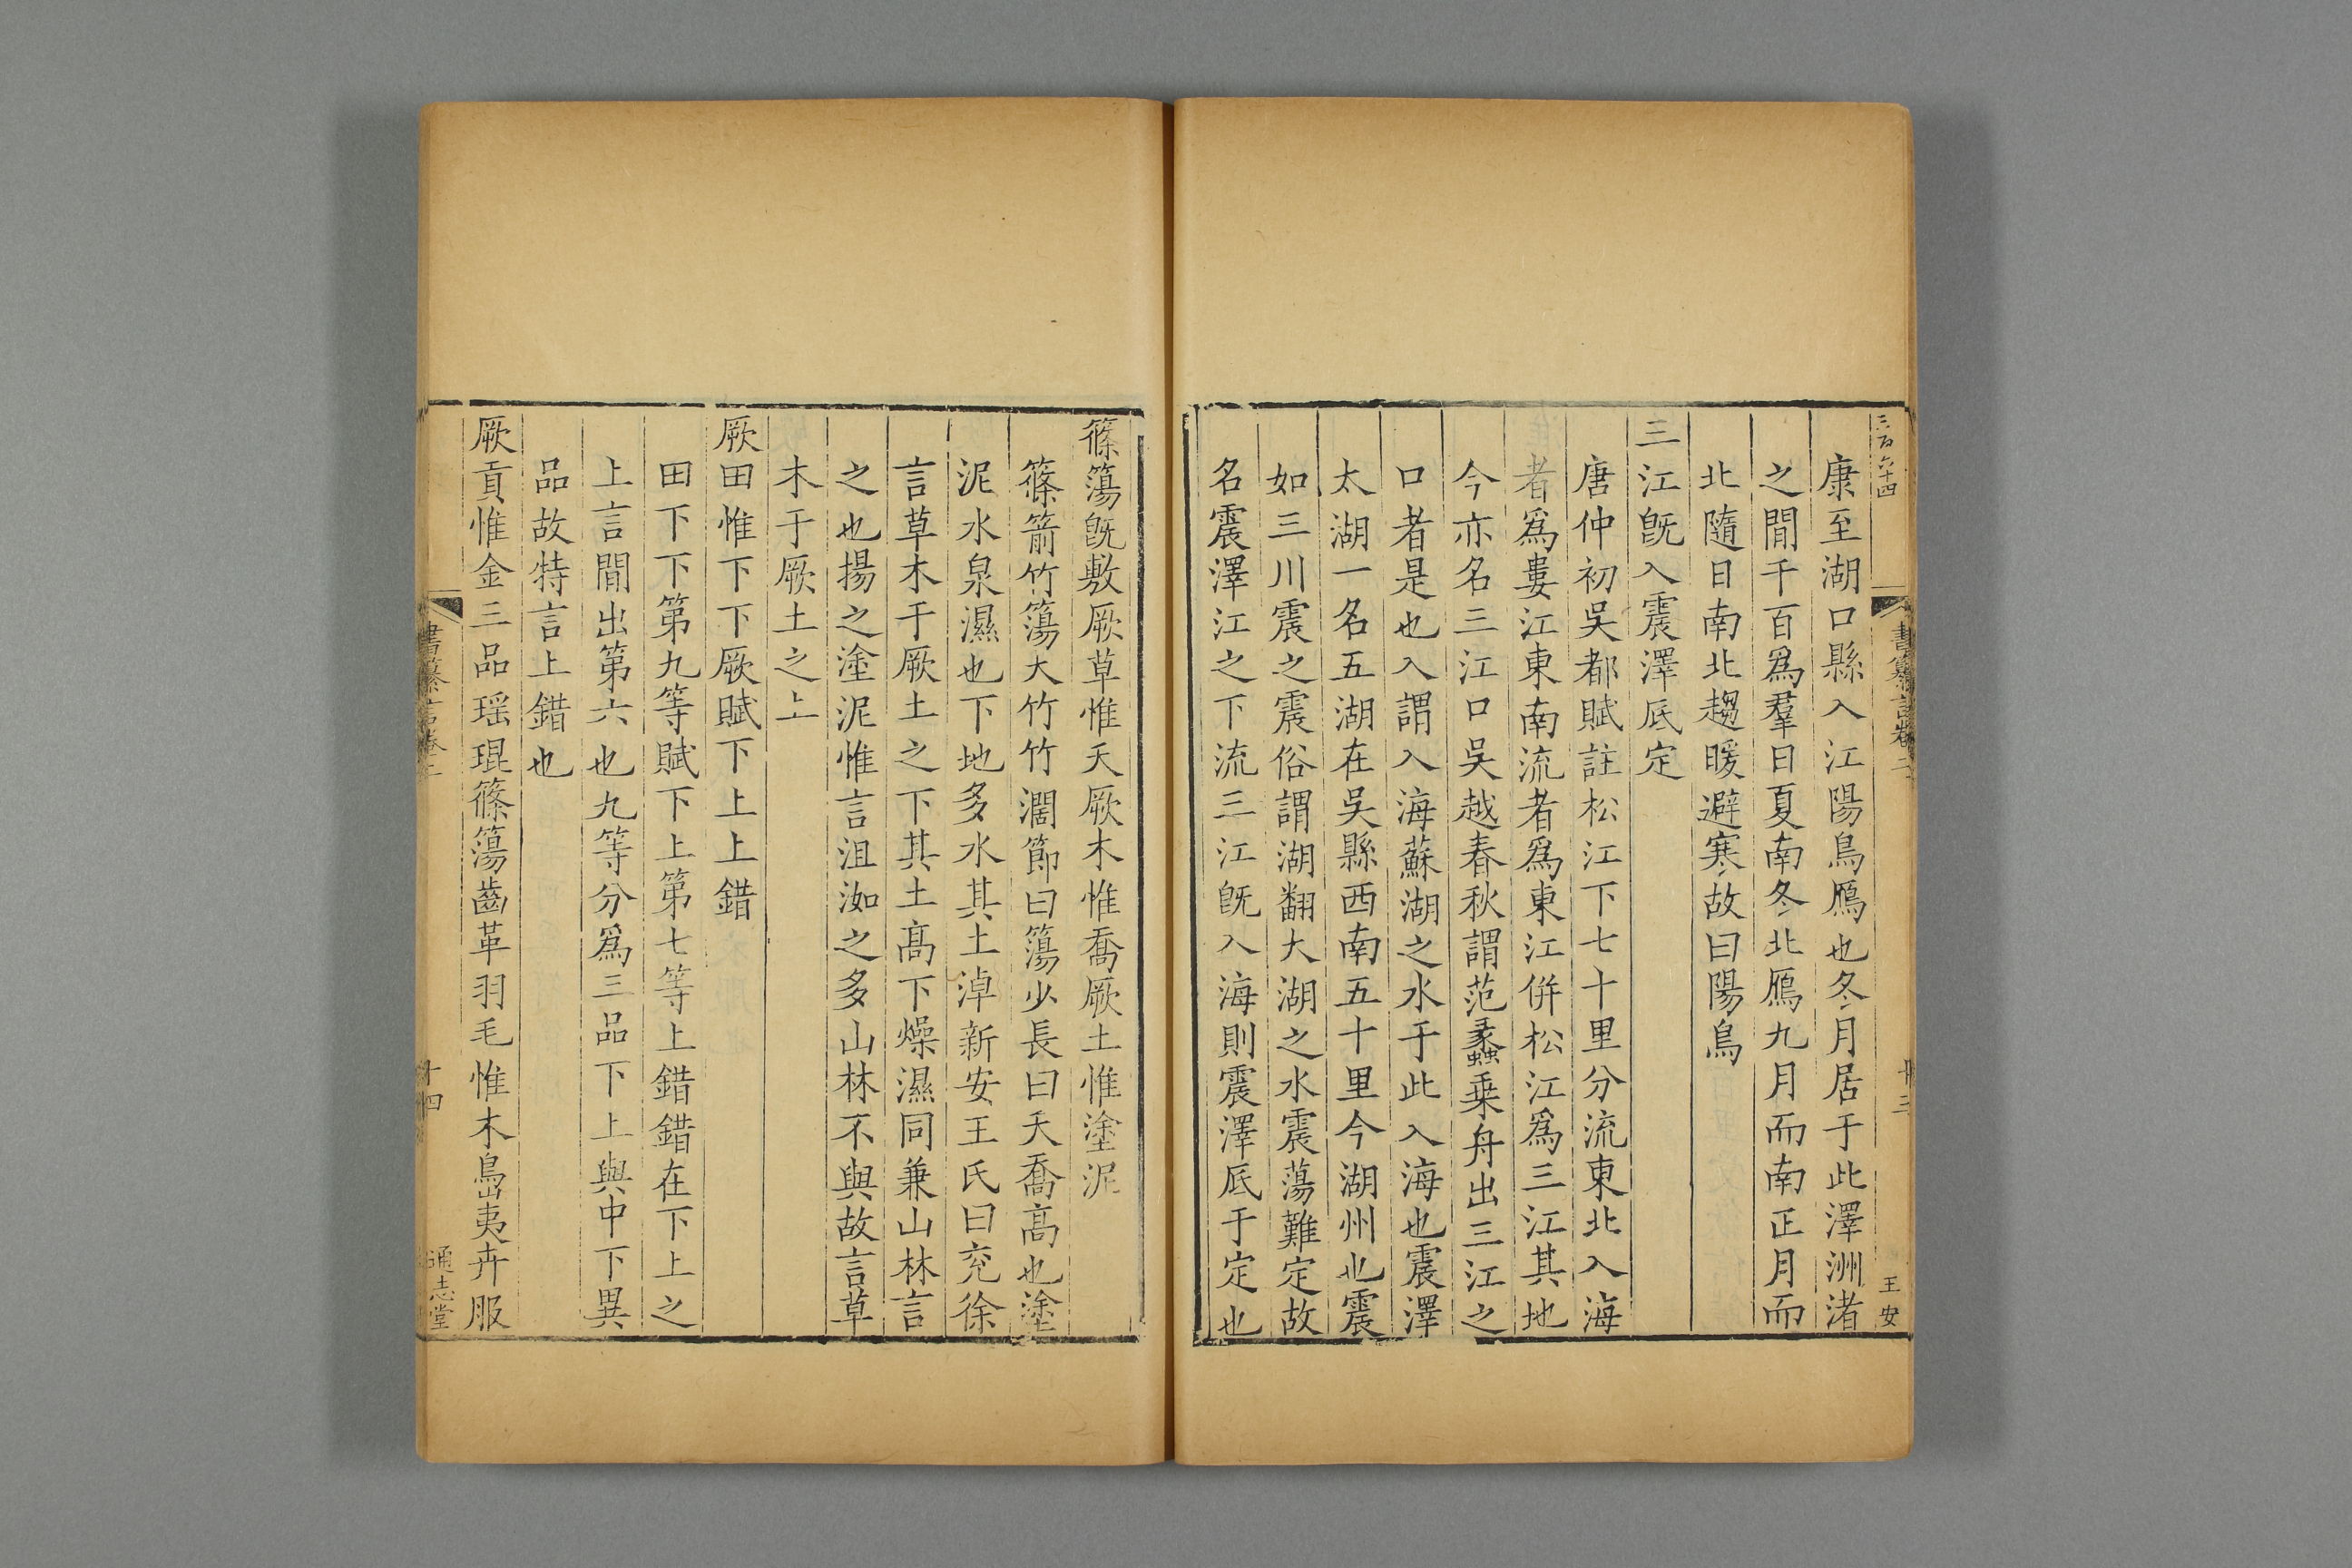 三百六十四
康至湖口縣入江陽鳥鴈也冬月居于此澤洲渚
之間千百爲羣日夏南冬北鴈九月而南正月而
北隨日南北趨暖避寒故曰陽鳥
三江旣入震澤底定
唐仲初吳都賦註松江下七十里分流東北入海
者爲婁江東南流者爲東江併松江爲三江其地
今亦名三江口吳越春秋謂范蠡乗舟出三江之
口者是也入謂入海蘇湖之水于此入海也震澤
太湖一名五湖在吳縣西南五十里今湖州也震
如三川震之震俗謂湖翻大湖之水震蕩難定故
名震澤江之下流三江旣入海則震澤底于定也
王安
篠簜旣敷厥草惟夭厥木惟喬厥土惟塗泥
篠箭竹簜大竹竹濶節曰簜少長曰夭喬高也塗
泥水泉濕也下地多水其土淖新安王氏曰兖徐
言草木于厥土之下其土髙下燥濕同兼山林言
之也揚之塗泥惟言沮洳之多山林不與故言草
木于厥土之上
厥田惟下下厥賦下上上錯
田下下第九等賦下上第七等上錯錯在下上之
上言間出第六也九等分爲三品下上與中下異
品故特言上錯也
厥貢惟金三品瑶琨篠簜齒革羽毛惟木島夷卉服
十四
通志堂